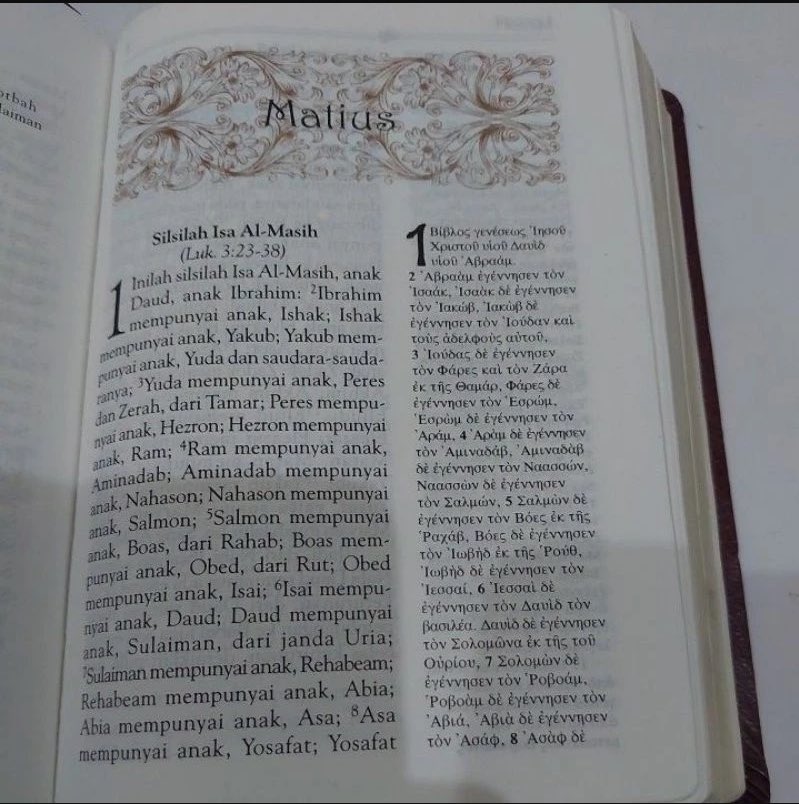 otbah
laiman
Matius
Silsilah Isa Al-Masih
(Luk. 3:23-38)
1 Inilah silsilah Isa Al-Masih, anak
Daud, anak Ibrahim: ²Ibrahim
mempunyai anak, Ishak; Ishak
mempunyai anak, Yakub; Yakub mem-
punyai anak, Yuda dan saudara-sauda-
ranya; ³Yuda mempunyai anak, Peres
dan Zerah, dari Tamar; Peres mempu-
nyai anak, Hezron; Hezron mempunyai
anak, Ram; ⁴Ram mempunyai anak,
Aminadab; Aminadab mempunyai
anak, Nahason; Nahason mempunyai
anak, Salmon; ⁵Salmon mempunyai
anak, Boas, dari Rahab; Boas mem-
punyai anak, Obed, dari Rut; Obed
mempunyai anak, Isai; ⁶Isai mempu-
nyai anak, Daud; Daud mempunyai
anak, Sulaiman, dari janda Uria;
⁷Sulaiman mempunyai anak, Rehabeam;
Rehabeam mempunyai anak, Abia;
Abia mempunyai anak, Asa; ⁸Asa
mempunyai anak, Yosafat; Yosafat
1 Βίβλος γενέσεως Ἰησοῦ
Χριστοῦ υἱοῦ Δαυὶδ
υἱοῦ Ἀβραάμ.
2 Ἀβραὰμ ἐγέννησεν τὸν
Ἰσαάκ, Ἰσαὰκ δὲ ἐγέννησεν
τὸν Ἰακώβ, Ἰακὼβ δὲ
ἐγέννησεν τὸν Ἰούδαν καὶ
τοὺς ἀδελφοὺς αὐτοῦ,
3 Ἰούδας δὲ ἐγέννησεν
τὸν Φάρες καὶ τὸν Ζάρα
ἐκ τῆς Θαμάρ, Φάρες δὲ
ἐγέννησεν τὸν Ἑσρώμ,
Ἑσρὼμ δὲ ἐγέννησεν τὸν
Ἀράμ, 4 Ἀρὰμ δὲ ἐγέννησεν
τὸν Ἀμιναδάβ, Ἀμιναδὰβ
δὲ ἐγέννησεν τὸν Ναασσών,
Ναασσὼν δὲ ἐγέννησεν
τὸν Σαλμών, 5 Σαλμὼν δὲ
ἐγέννησεν τὸν Βόες ἐκ τῆς
Ῥαχάβ, Βόες δὲ ἐγέννησεν
τὸν Ἰωβὴδ ἐκ τῆς Ῥούθ,
Ἰωβὴδ δὲ ἐγέννησεν τὸν
Ἰεσσαί, 6 Ἰεσσαὶ δὲ
ἐγέννησεν τὸν Δαυὶδ τὸν
βασιλέα. Δαυὶδ δὲ ἐγέννησεν
τὸν Σολομῶνα ἐκ τῆς τοῦ
Οὐρίου, 7 Σολομὼν δὲ
ἐγέννησεν τὸν Ῥοβοάμ,
Ῥοβοὰμ δὲ ἐγέννησεν τὸν
Ἀβιά, Ἀβιὰ δὲ ἐγέννησεν
τὸν Ἀσάφ, 8 Ἀσὰφ δὲ